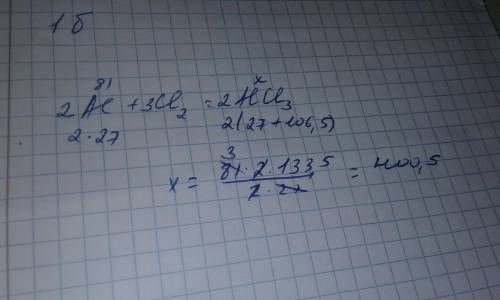 1б
81 x
2Al + 3Cl₂ = 2AlCl₃
2·27 2(27+106,5)
x = 3 81·2·133,5 / 2·27 = 400,5